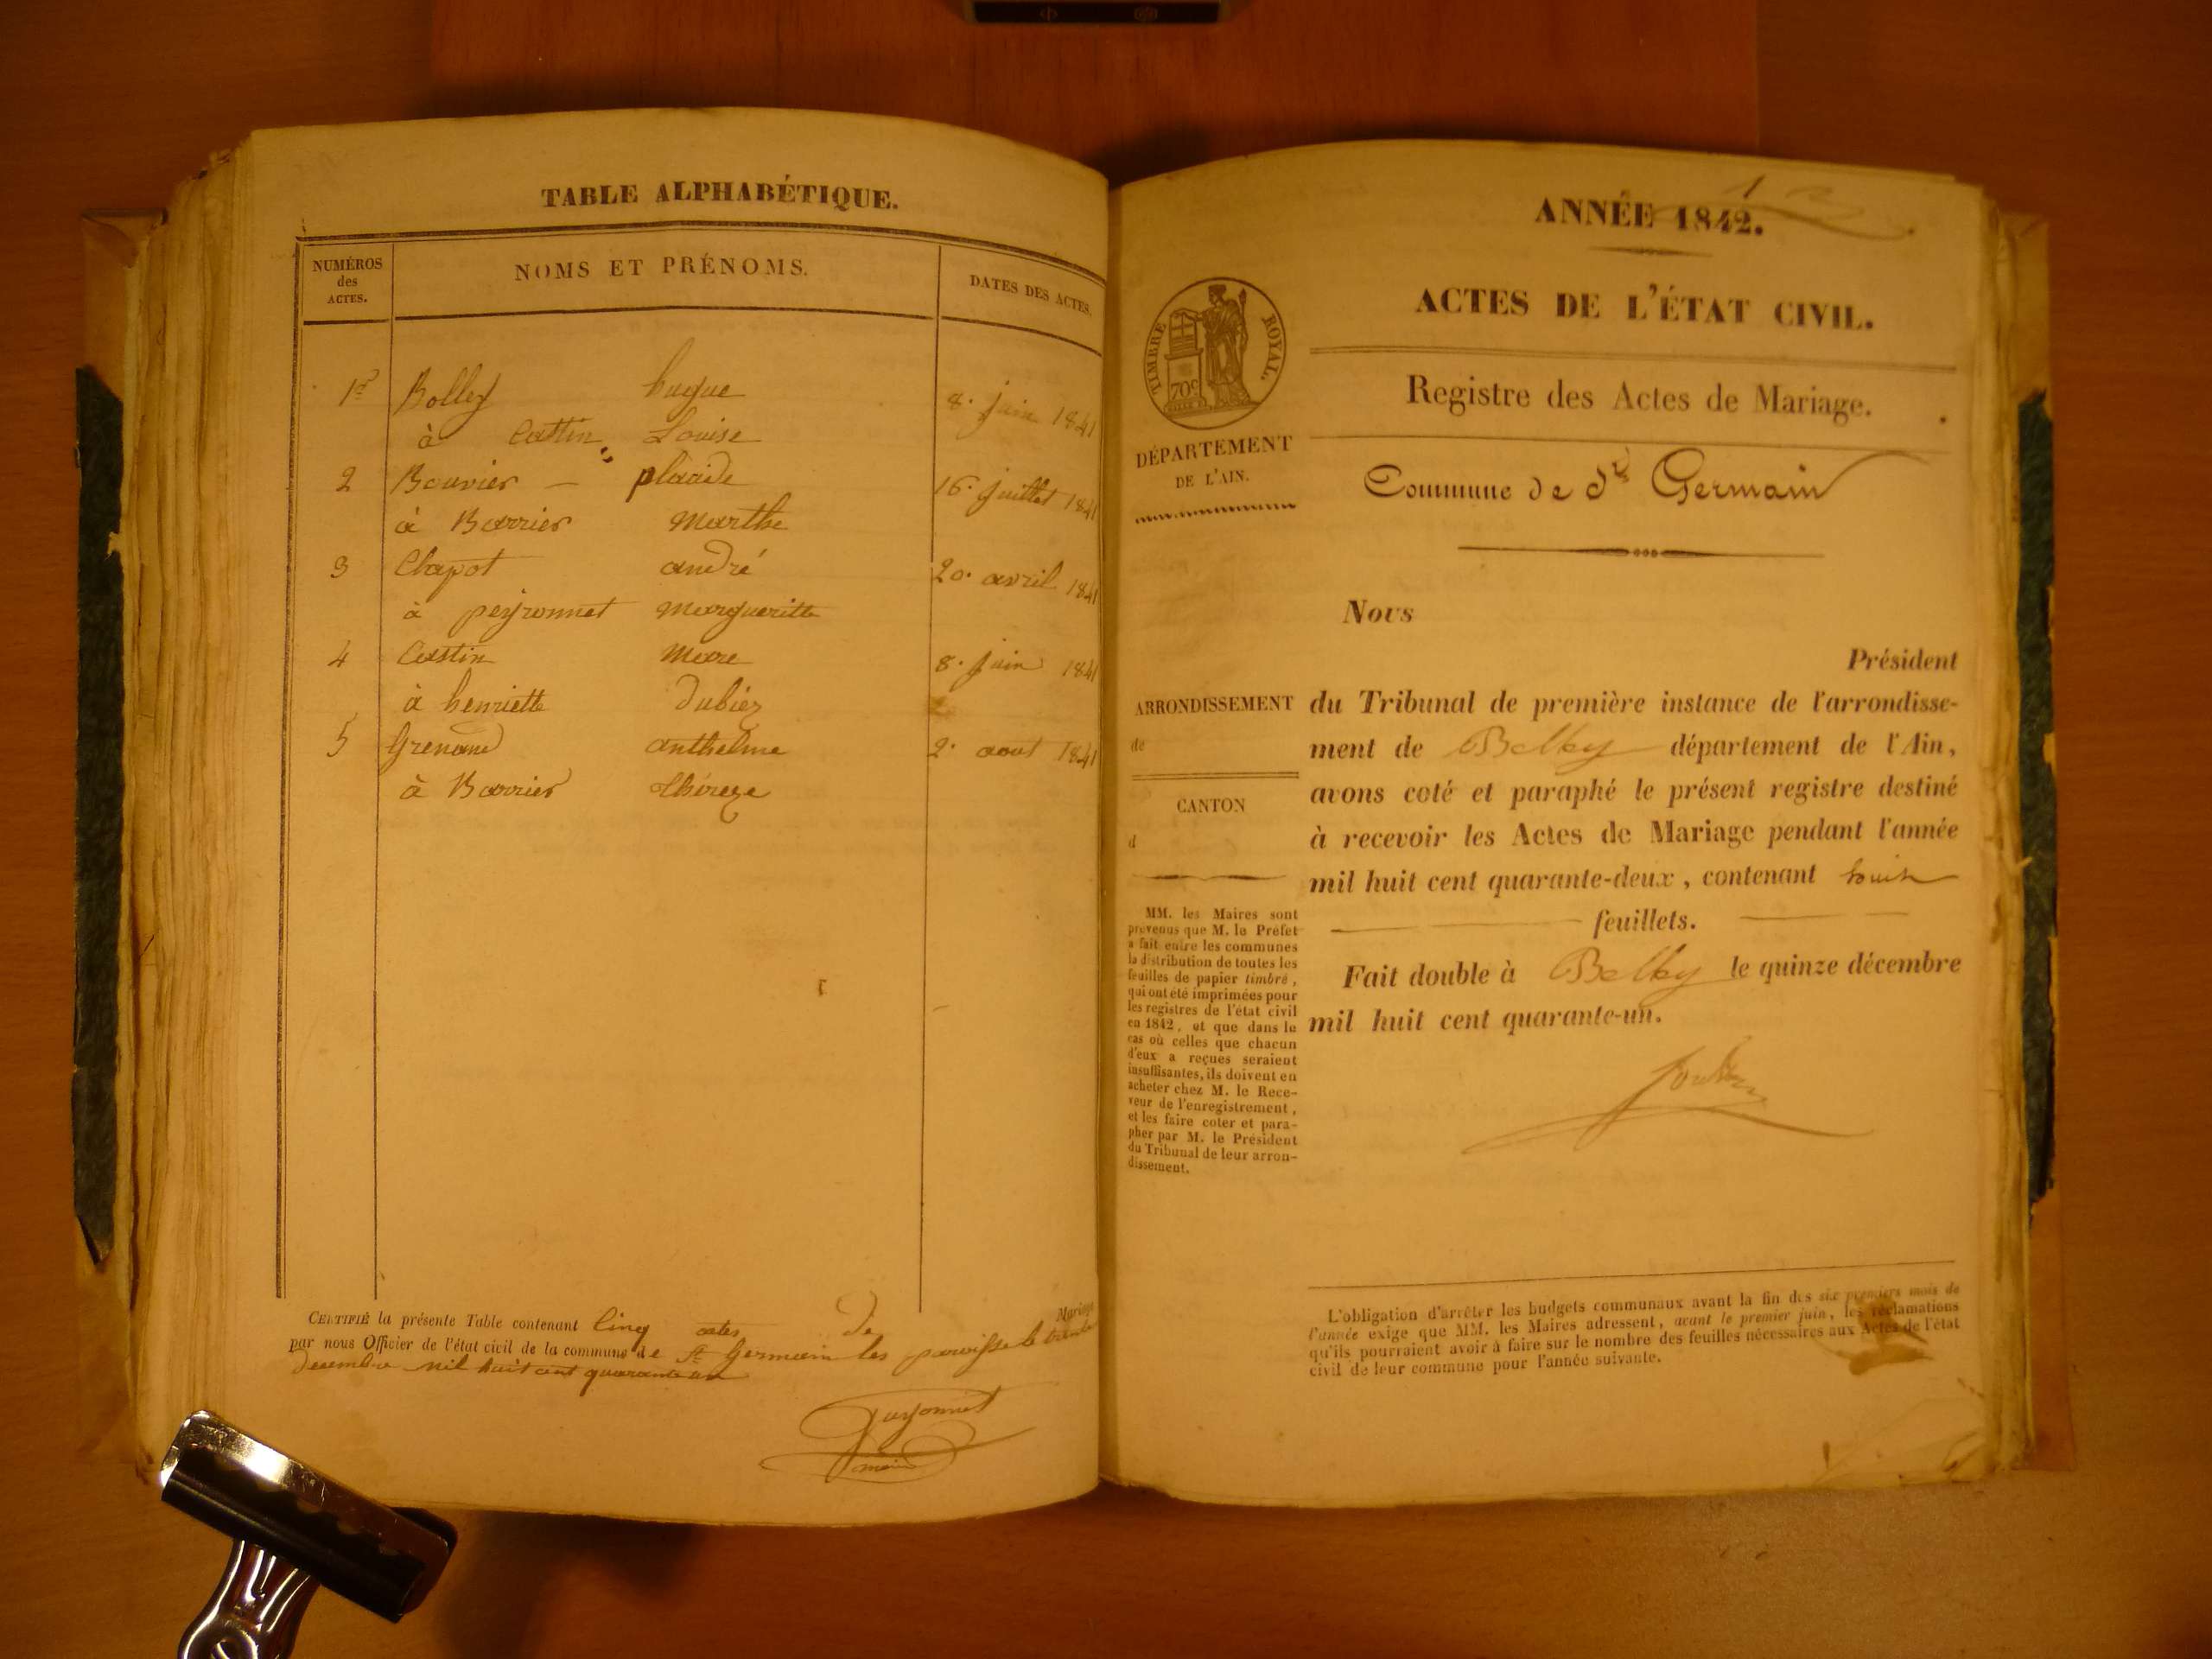 TABLE ALPHABÉTIQUE.
NUMÉROS des ACTES.
NOMS ET PRÉNOMS.
DATES DES ACTES.
1er Bolley hugue 8. juin 1841
à Castin Louise
2 Bouvier — placide 16. juillet 1841
à Barrier Marthe
3 Chapot andré 20. avril 1841
à peyronnet Margueritte
4 Castin Marc 8. juin 1841
à henriette Dubiez
5 Grenand anthelme 2. aout 1841
à Barrier Thérèze
CERTIFIÉ la présente Table contenant Cinq actes de Mariage
par nous Officier de l'état civil de la commune de St Germain les paroisse le trente
decembre mil huit cent quarante un
Peysonnet
maire
ANNÉE 1842.
ACTES DE L'ÉTAT CIVIL.
TIMBRE ROYAL.
70c
Registre des Actes de Mariage.
DÉPARTEMENT
DE L'AIN.
Commune de St Germain
Nous
Président
ARRONDISSEMENT
de
CANTON
d
du Tribunal de première instance de l'arrondisse-
ment de Belley département de l'Ain,
avons coté et paraphé le présent registre destiné
à recevoir les Actes de Mariage pendant l'année
mil huit cent quarante-deux, contenant huit
feuillets.
Fait double à Belley le quinze décembre
mil huit cent quarante-un.
MM. les Maires sont
prévenus que M. le Préfet
a fait entre les communes
la distribution de toutes les
feuilles de papier timbré,
qui ont été imprimées pour
les registres de l'état civil
en 1842, et que dans le
cas où celles que chacun
d'eux a reçues seraient
insuffisantes, ils doivent en
acheter chez M. le Rece-
veur de l'enregistrement,
et les faire coter et para-
pher par M. le Président
du Tribunal de leur arron-
dissement.
L'obligation d'arrêter les budgets communaux avant la fin des six premiers mois de
l'année exige que MM. les Maires adressent, avant le premier juin, les réclamations
qu'ils pourraient avoir à faire sur le nombre des feuilles nécessaires aux Actes de l'état
civil de leur commune pour l'année suivante.